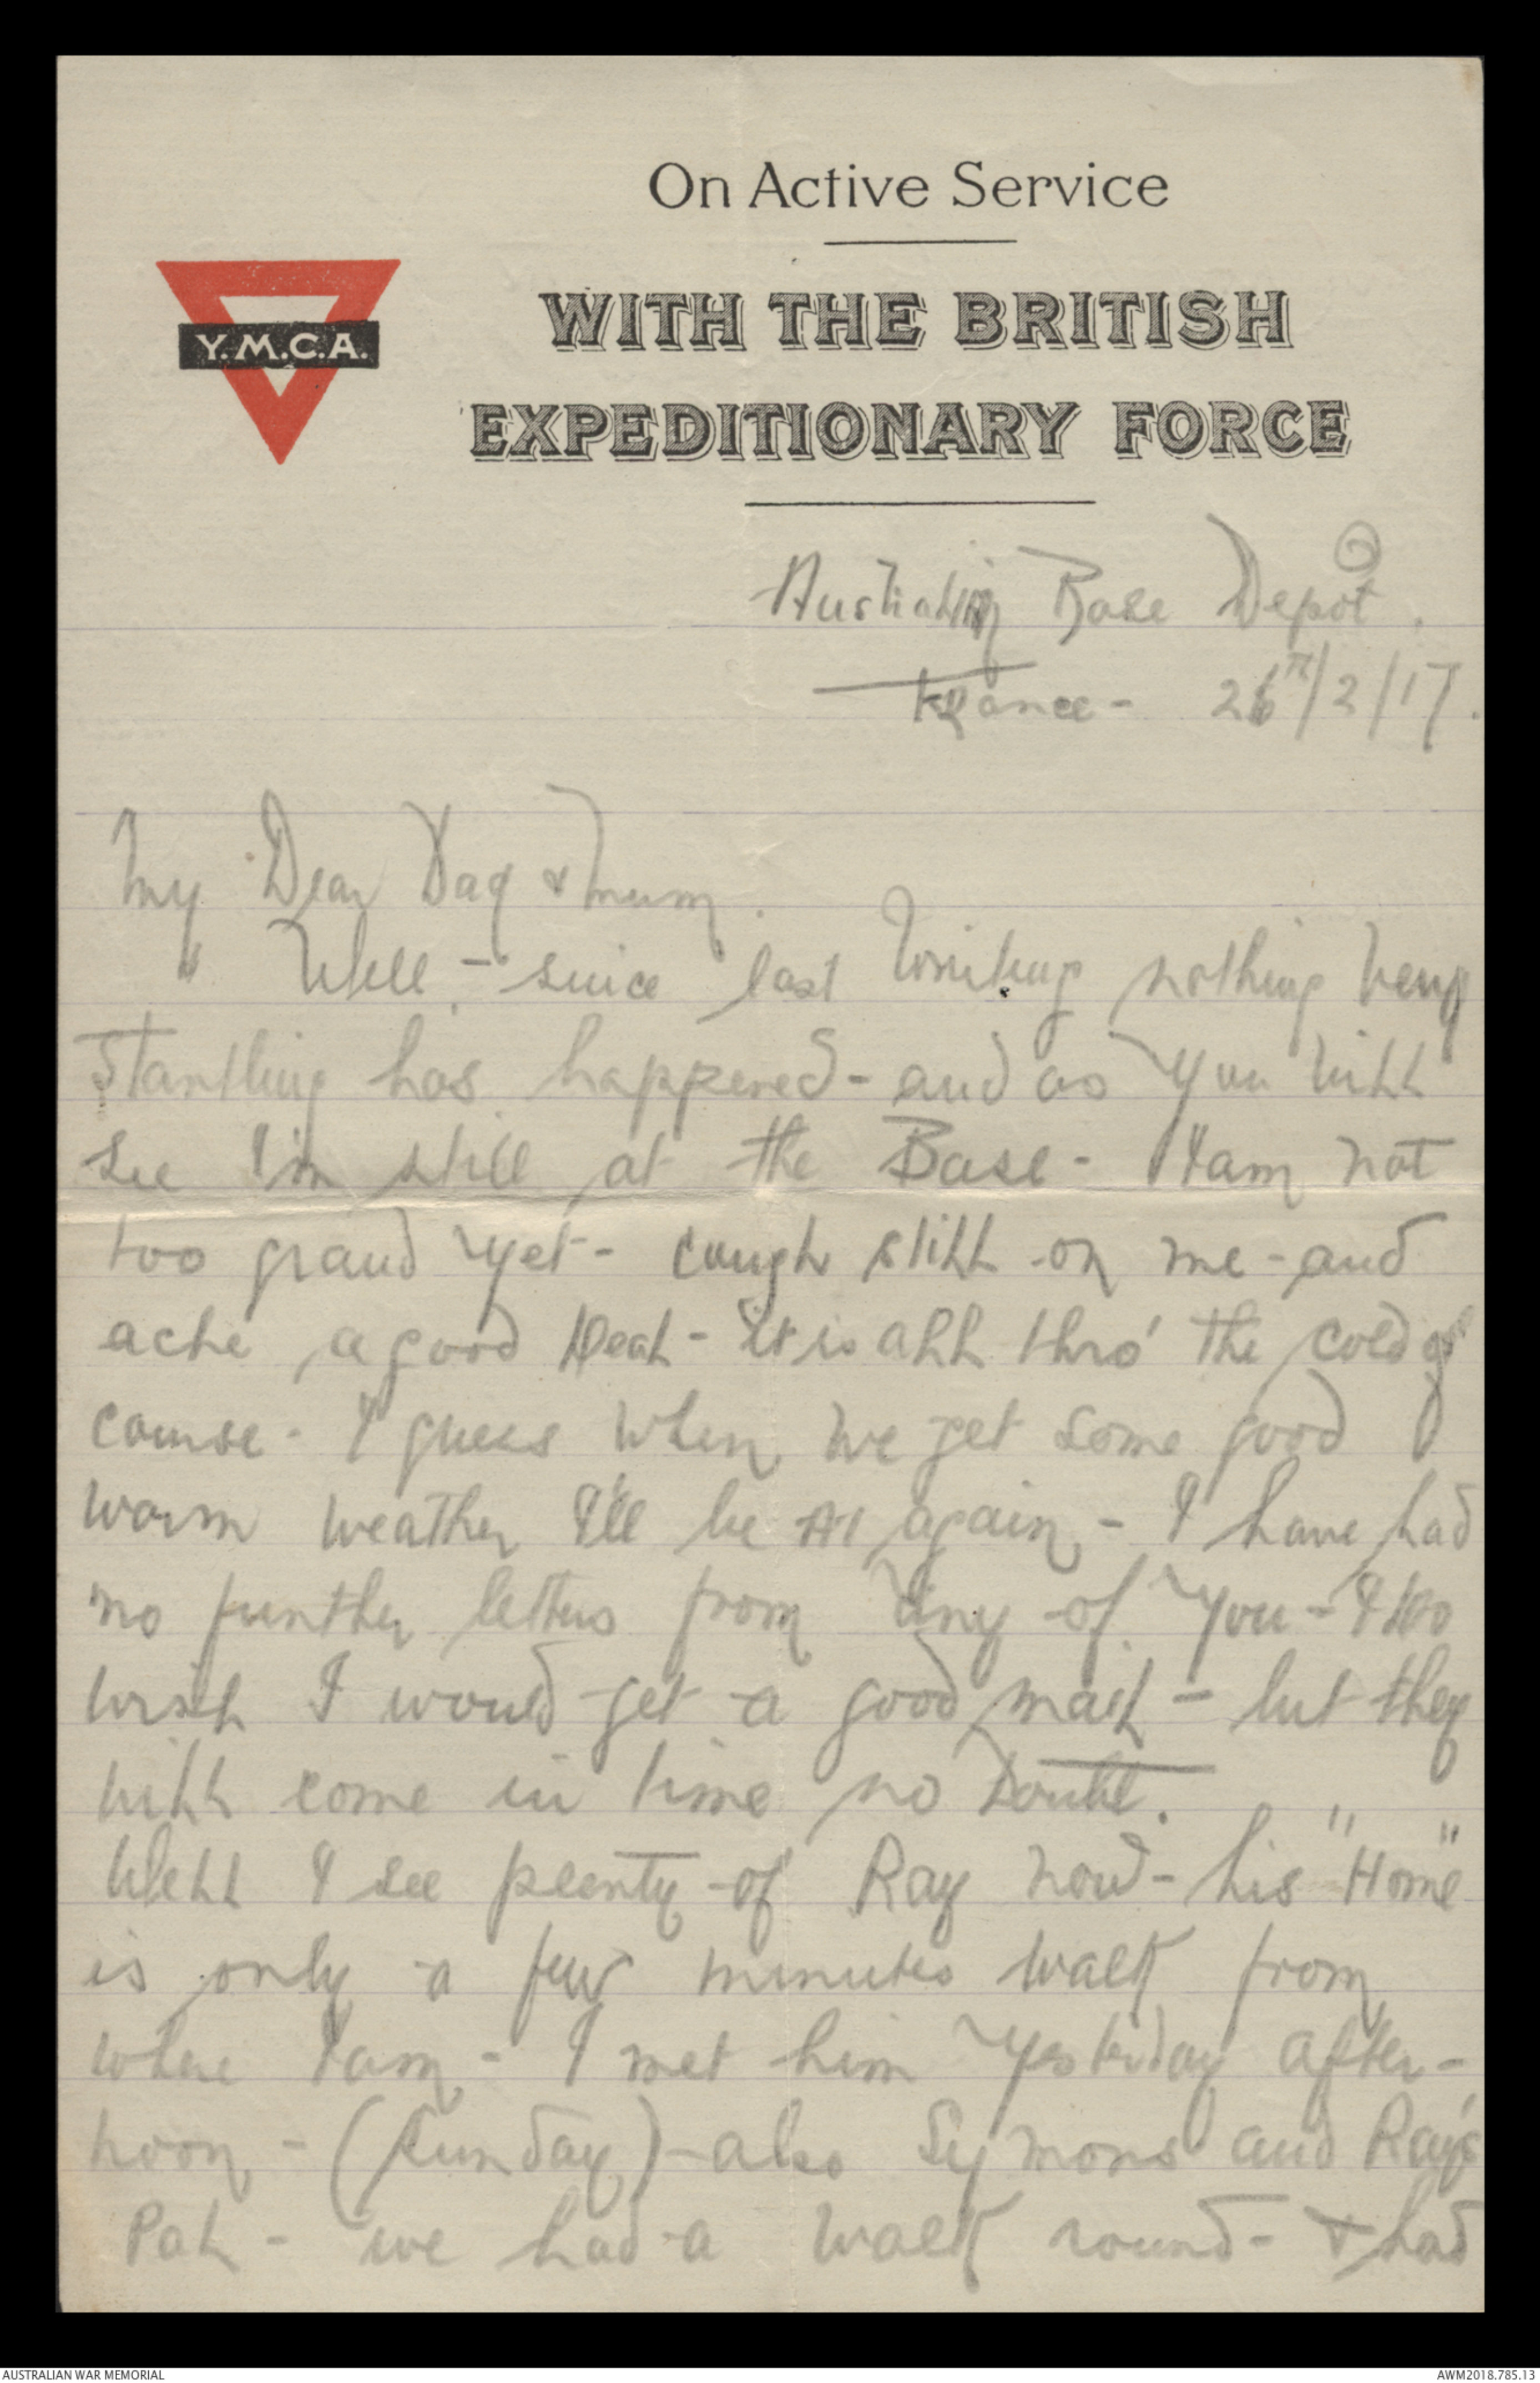 On Active Service
WITH THE BRITISH
EXPEDITIONARY FORCE
Y.M.C.A.
Australian Base Depot.
France - 26th/2/17.
My Dear Dad & Mum.
Well, - since last writing nothing very
startling has happened - and as you will
see I'm still at the Base - I am not
too grand yet - cough still on me - and
ache a good deal - it is all thro' the cold of
course - I guess when we get some good
warm weather I'll be A1 again - I have had
no further letters from any of you - I do
wish I would get a good mail - but they
will come in time no doubt.
Well I see plenty of Ray now - his "Home"
is only a few minutes walk from
where I am - I met him yesterday after-
noon - (Sunday) - also Symons and Ray's
Pal - we had a walk round - & had
AUSTRALIAN WAR MEMORIAL
AWM2018.785.13